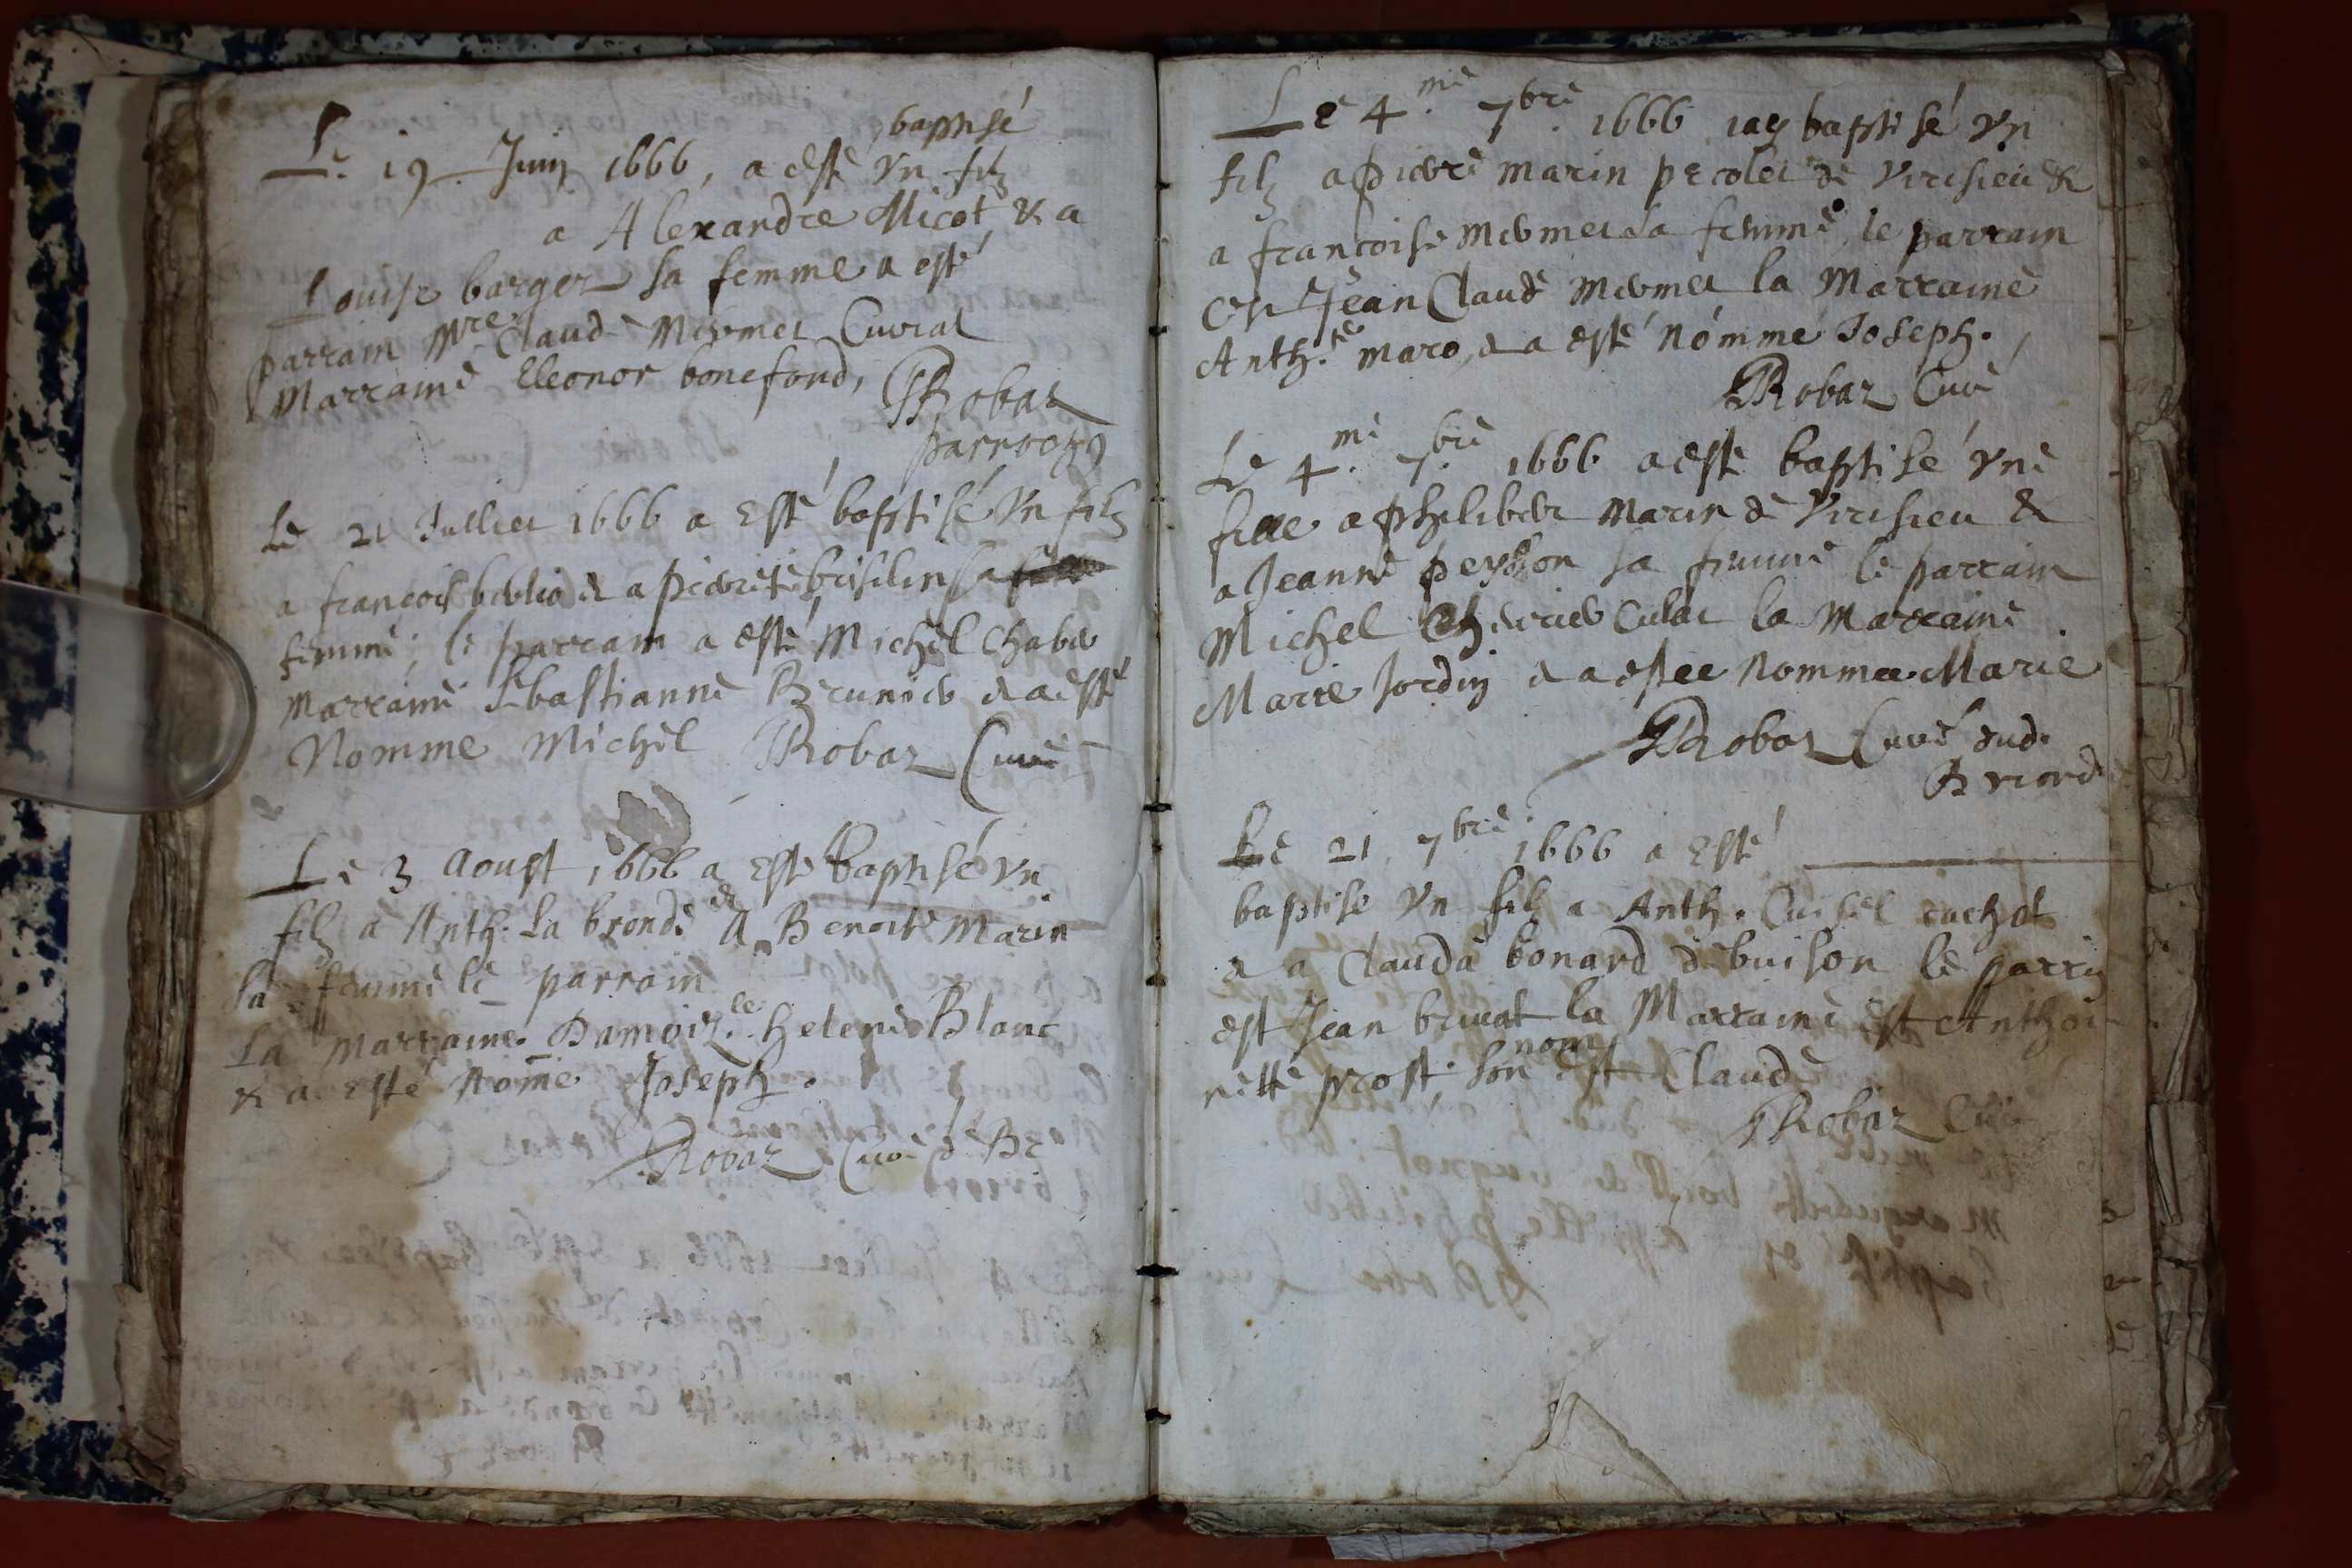 Le 19 Juin 1666, a esté baptisé un filz
a Alexandre Micot & a
Louise barger sa femme a esté
parrain Mre Claude Meumet Curial
Marraine Eleonor bonefond,
Robat
parrochus
Le 21 Jullier 1666 a Esté baptisé Un filz
a francois & a pierrete brisilin sa
femme; le parrain a esté Michel Chaber
Marraine Sebastianne Brunier & a esté
Nomme Michel Robat Curé
Le 3 Aoust 1666 a Esté baptisé Un
filz a Anth. La brende & A Benoite Marin
sa femme le parrain
La Marraine Damoiz.le helene Blanc
& a esté Nomé Joseph.
Robat Curé de Br
Le 4.me 7.bre 1666 iay baptisé Un
filz a pierre marin pecolet de Virisieu &
a francoise meumet sa femme, le parrain
est Jean Claude meumet la Marraine
Anth.te maro, & a esté nommé Joseph.
Robat Curé
Le 4.me 7.bre 1666 a esté baptisé Une
fille a philibert Marin de Virisieu &
a Jeanne peysson sa femme le parrain
Michel Chevrier Culat la Marraine
Marie Jordin & a estee Nommee Marie
Robat Curé dud.
Briord
Le 21 7bre 1666 a Esté
baptise Un filz a Anth. Cuisel cachot
& a Clauda bonard de buison le parrin
est Jean brucat la Marraine est Anthoi-
nette prost; son nom est Claude
Robat Curé